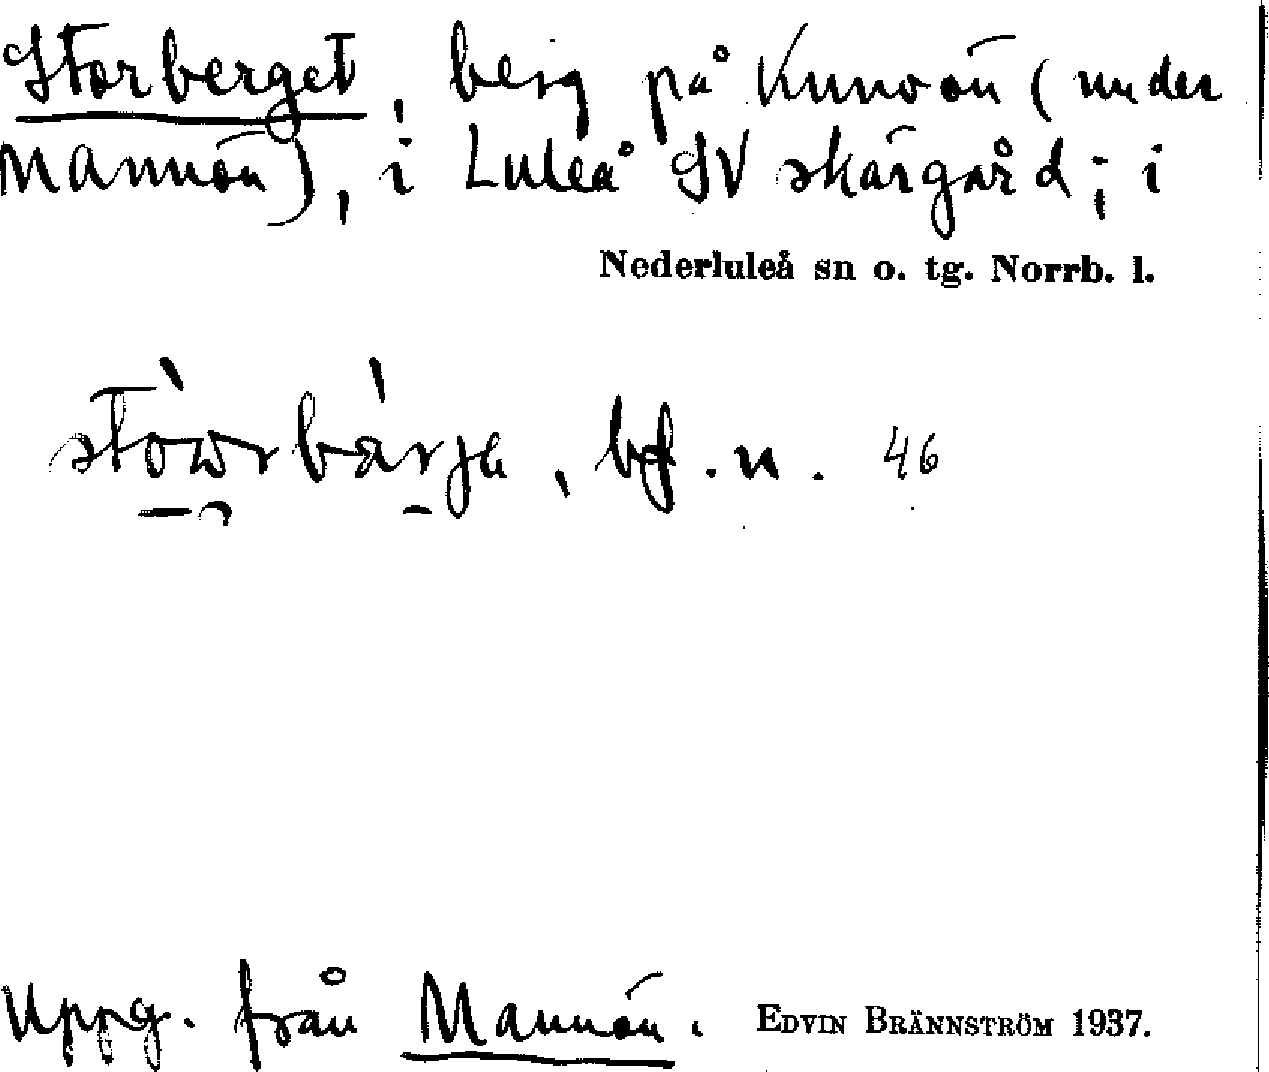 Storberget, berg på Kunoön (under
Mannön), i Luleå SV skärgård; i
Nederluleå sn o. tg. Norrb. l.
stòwrbàrje, bf. n. 46
Uppg. från Mannön. EDVIN BRÄNNSTRÖM 1937.